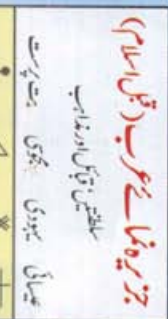 جزیرہ نمائے عرب (قبل اسلام)
سلطنتیں قبائل اور مذاہب
عیسائی یہودی مجوسی بت پرست